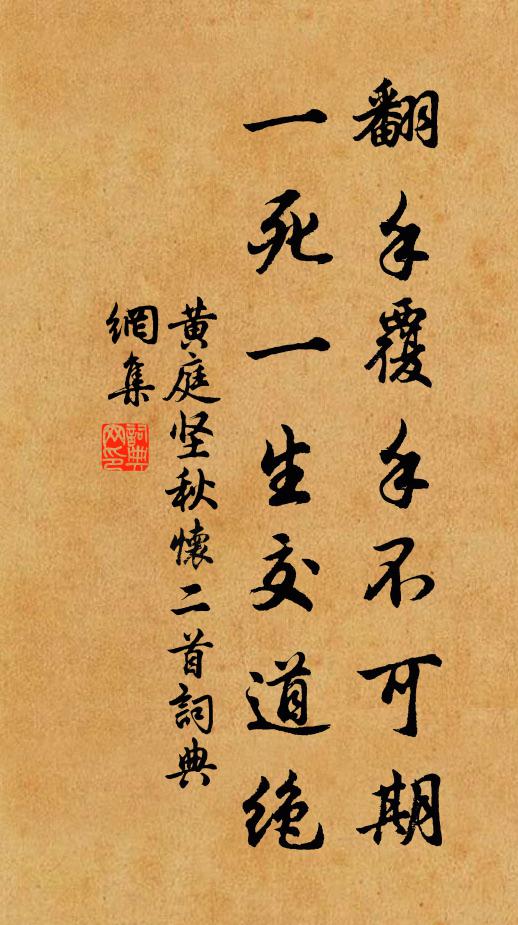 翻手覆手不可期
一死一生交道绝
黄庭坚秋懷二首詞典
網集
詞典
网印